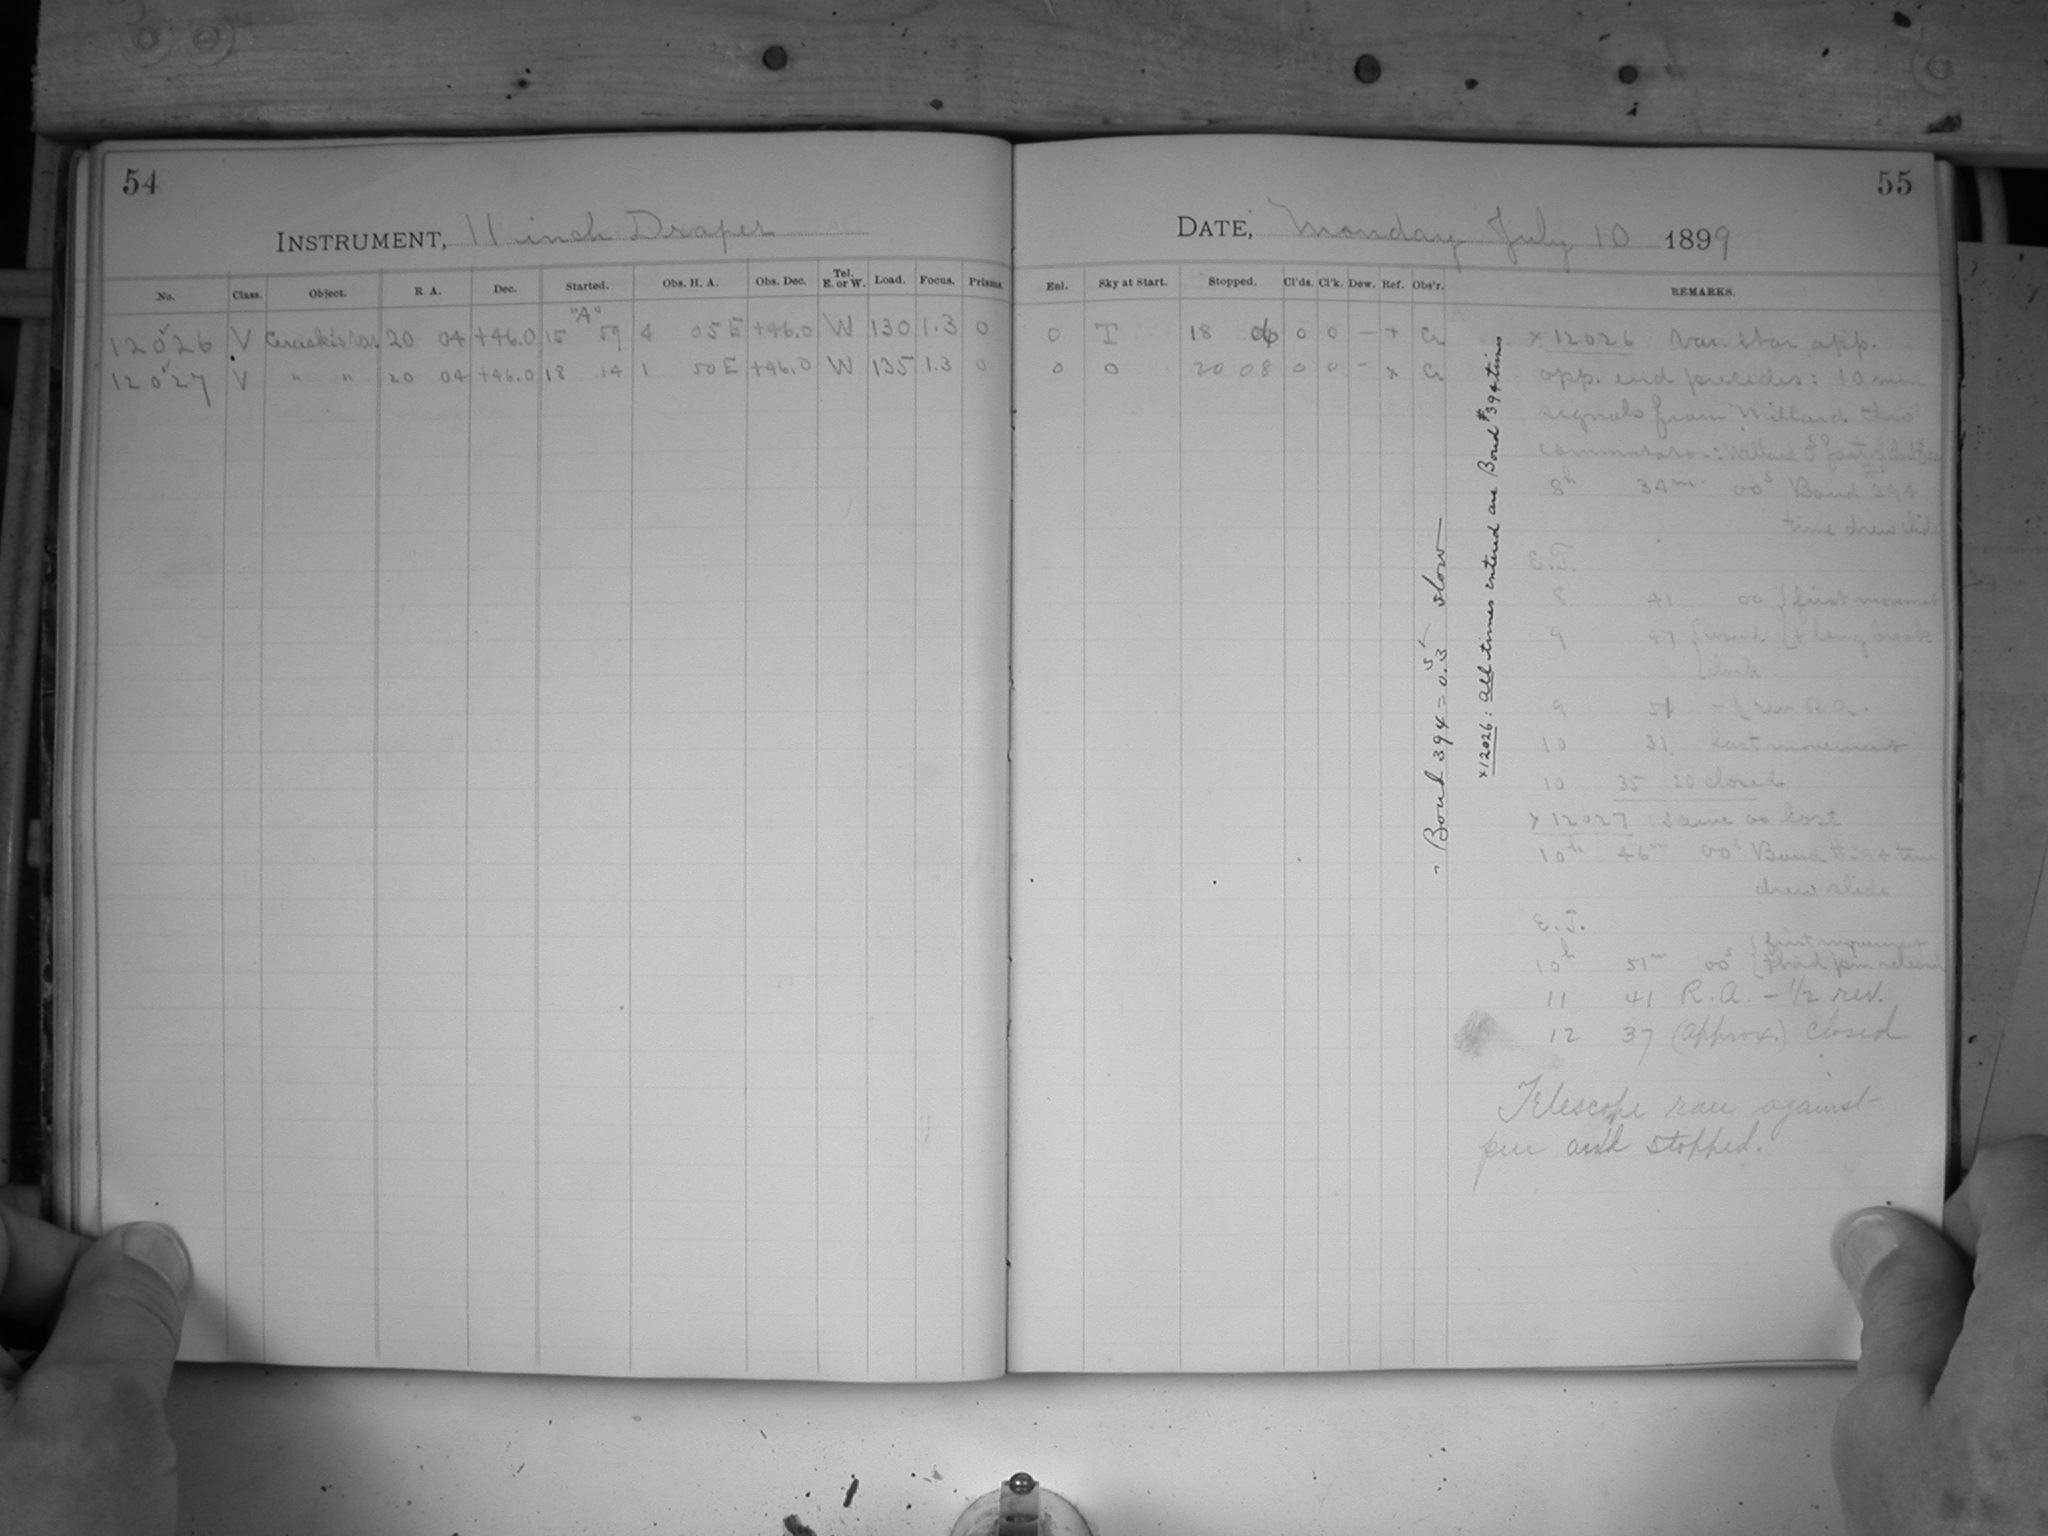 54
INSTRUMENT, 11 inch Draper
No. Class. Object. R. A. Dec. Started. Obs. H. A. Obs. Dec. Tel. E. or W. Load. Focus. Prisms.
"A"
12026 V Ceraski's Var. 20 04 +46.0 15 59 4 05 E +46.0 W 130 1.3 0
12027 V " " 20 04 +46.0 18 14 1 50 E +46.0 W 135 1.3 0
55
DATE, Monday July 10 1899
Enl. Sky at Start. Stopped. Cl'ds. Cl'k. Dew. Ref. Obs'r. REMARKS.
0 I 18 06 0 0 – + Cr
0 0 20 08 0 0 – x Cr
Bond 394 = 0.3s slow
x12026: All times entered are Bond #394 times
x 12026 Var. star app.
opp. end precedes: 10 min
signals from Willard thro'
commutator: Willard fast of
8h 34m 00s Bond 394
time drew slide
E.T.
8 41 00 {first movement
9 47 {wound {+ long break
{clock
9 51 – { rev R.A.
10 31 last movement
10 35 20 closed
x 12027: same as last
10h 46m 00s Bond #394 time
drew slide
E.T.
10h 51m 00s {first movement
{third pin released
11 41 R.A. – 1/2 rev.
12 37 (approx.) closed
Telescope ran against
pier and stopped.